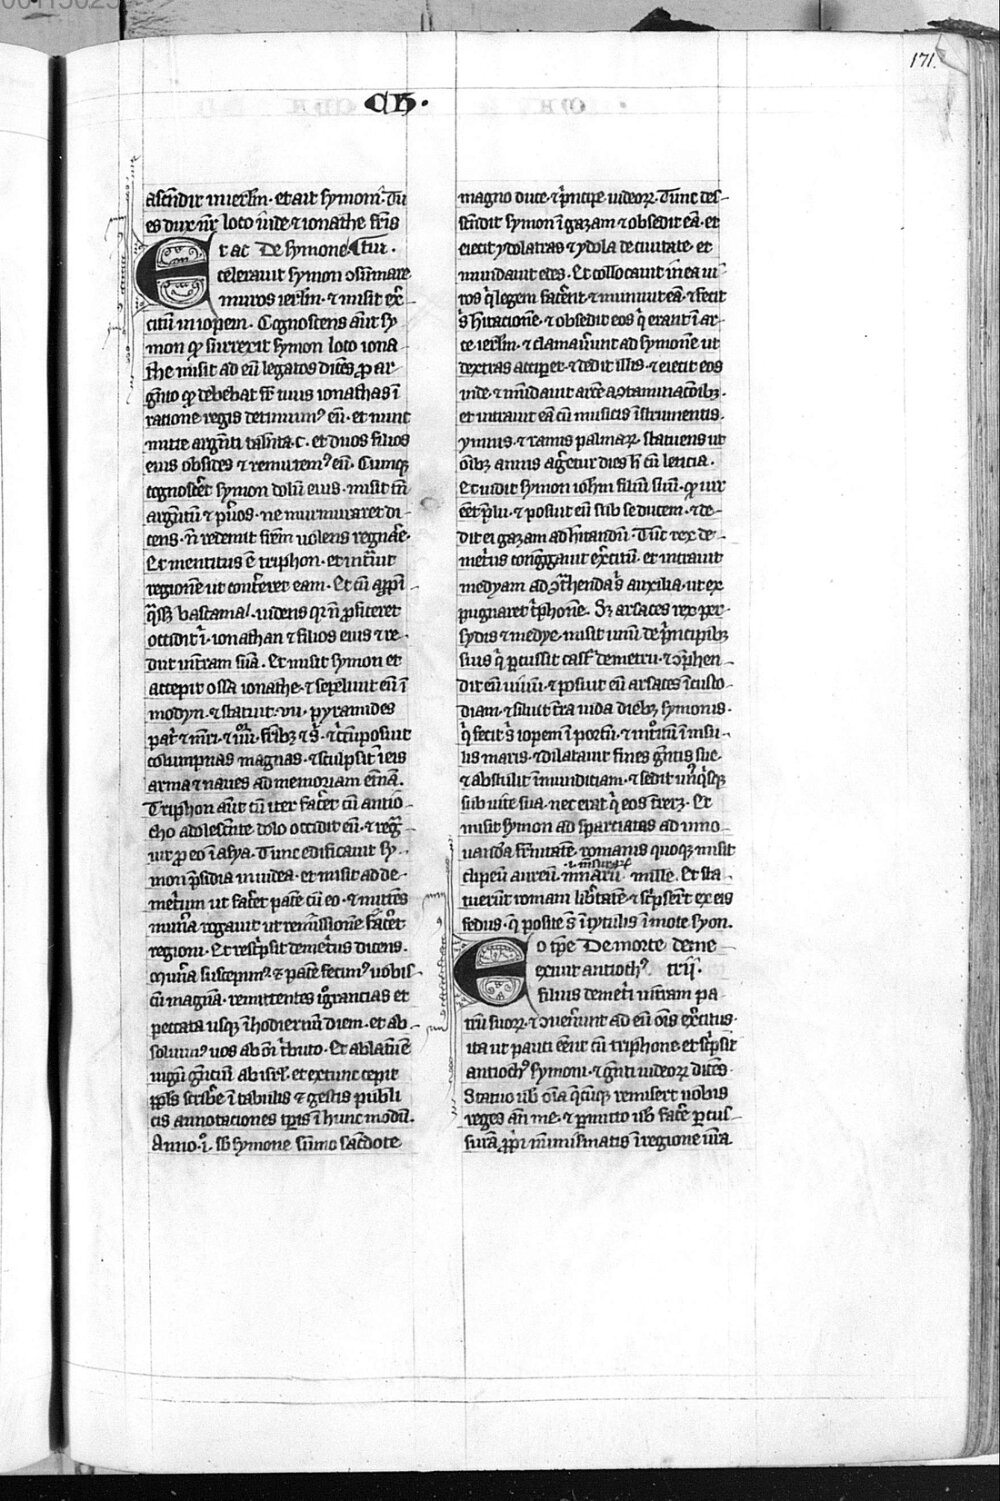 171.
CH.
ascēdit in ierłm · et ait symoni · Tu
es dux nr̄ loco iude ⁊ ionathe fr̄is
Et ac De symone
celerauit symon ɔsūmare
muros ierłm · ⁊ misit ex̄
citū in iopem · Cognoscens aūt sy
mon ꝙ surrexit symon loco iona
the misit ad eū legatos dices ꝓ ar
gēto ꝙ debebat fr̄ tuus ionathas ī
ratione regis detinuimꝰ eū · et nunc
mitte argēti talēta · c · et duos filios
eius obsides ⁊ remittemꝰ eū · Cumqꝫ
cognosc̄et symon dolū eius · misit tn̄
argētū ⁊ pūos · ne murmuraret di
cens · n̄ redemit frēm uolens regnāe ·
Et mentitus ē triphon · et intūit
regionē ut cont̄eret eam · Et cū appī
q̄sꝫ bascamal · uidens qr n̄ ꝓficeret
occidit ī · ionathan ⁊ filios eius ⁊ re
diit in t̄ram suā · Et misit symon et
accepit ossa ionathe · ⁊ sepeliuit eū ī
modyn · ⁊ statuit · vii · pyramides
pat̄ ⁊ mr̄i · ⁊ iiii · fr̄ibꝫ ⁊ s̄ · ⁊ circūposuit
columpnas magnas · ⁊ sculpsit ī eis
arma ⁊ naues ad memoriam et̄nā ·
Triphon aūt cū iter fac̄et cū antio
cho adolescēte dolo occidit eū · ⁊ reḡ
uit ꝓ eo ī asya · Tunc edificauit sy
mon p̄sidia in iudea · et misit ad de
met̄um ut fac̄et pacē cū eo · ⁊ mittēs
mun̄a rogauit ut remissionē fac̄et
regioni · Et resc̄psit demet̄us dicens ·
Mun̄a suscepimꝰ · ⁊ pacē fecimꝰ uobis
cū magnā · remittentes ignorancias et
peccata usqꝫ ī hodiernū diem · et ab
soluimꝰ uos ab oī t̄buto · Et ablatū ē
iugū gēciū ab isrł · et extunc cepit
ppłs scribe ī tabulis ⁊ gestis publi
cis annotaciones tꝑis ī hunc modū ·
Anno · i · sb symone sūmo sac̄dote
magno duce · ⁊ p̄ncipe iudeoꝝ · Tunc des
cēdit symon ī gazam ⁊ obsedit eā · et
eiecit ydolatras ⁊ ydola de ciuitate · et
mundauit edes · Et collocauit in ea ui
ros q̄ legem fac̄ent · ⁊ muniuit eā · ⁊ fecit
s̄ hitacionē · ⁊ obsedit eos q̄ erant ī ar
ce ierłm · ⁊ clamauūnt ad symonē ut
dextras acciꝑet · ⁊ dedit illis · ⁊ eiecit eos
inde · ⁊ mūdauit arcē a ɔtaminacōibꝫ ·
et intrauit eā cū musicis īstrumentis ·
ymnis · ⁊ ramis palmaꝝ · statuens ut
oībꝫ annis aḡetur dies h̄ cū leticia ·
Et uidit symon iohm filiū suū · ꝙ uir
eēt p̄lii · ⁊ posuit eū sub se ducem · ⁊ de
dit ei gazam ad hitandū · Tūc rex de
met̄us cong̃gauit exc̄itū · et intrauit
medyam ad ɔt̄henda s̄ auxilia · ut ex
pugnaret t̄phonē · Sꝫ arsaces rex ꝑer
sydis ⁊ medye · misit unū de p̄ncipibꝫ
suis q̄ ꝑcussit cast̄ demetrii · ⁊ ɔphen
dit eū uiuū · ⁊ posuit eū arsaces ī custo
diam · ⁊ siluit t̄ra iuda diebꝫ symonis ·
q̄ fecit s̄ iopem ī portū · ⁊ int̄oitū ī insu
lis maris · ⁊ dilatauit fines gētis sue ·
⁊ abstulit īmundiciam · ⁊ sedit unꝰq̄sqꝫ
sub uite sua · nec erat q̄ eos t̄reꝫ · Et
misit symon ad sparciatas ad inno
uanda fr̄nitatē · romanis quoqꝫ misit
clipeū aureū mnarū mille · Et sta
tuerūt romani lib̄tatē · ⁊ sc̄pserūt ex eis
fedus · q̄ posite sꝫ ī tytulis ī mōte syon ·
Eo tꝑe De morte deme
exiuit antiochꝰ trii ·
filius demet̄i in t̄ram pa
trū suoꝝ · ⁊ ɔueūnt ad eū oīs exc̄itus ·
ita ut pauci eēnt cū triphone · et sc̄psit
antiochꝰ symoni · ⁊ gēti iudeoꝝ dicēs ·
Statuo uob̄ oīa q̄cūqꝫ remiserūt uobis
reges an̄ me · ⁊ ꝑmitto uob̄ face ꝑcus
surā ꝓpi numismatis ī regione ur̄a